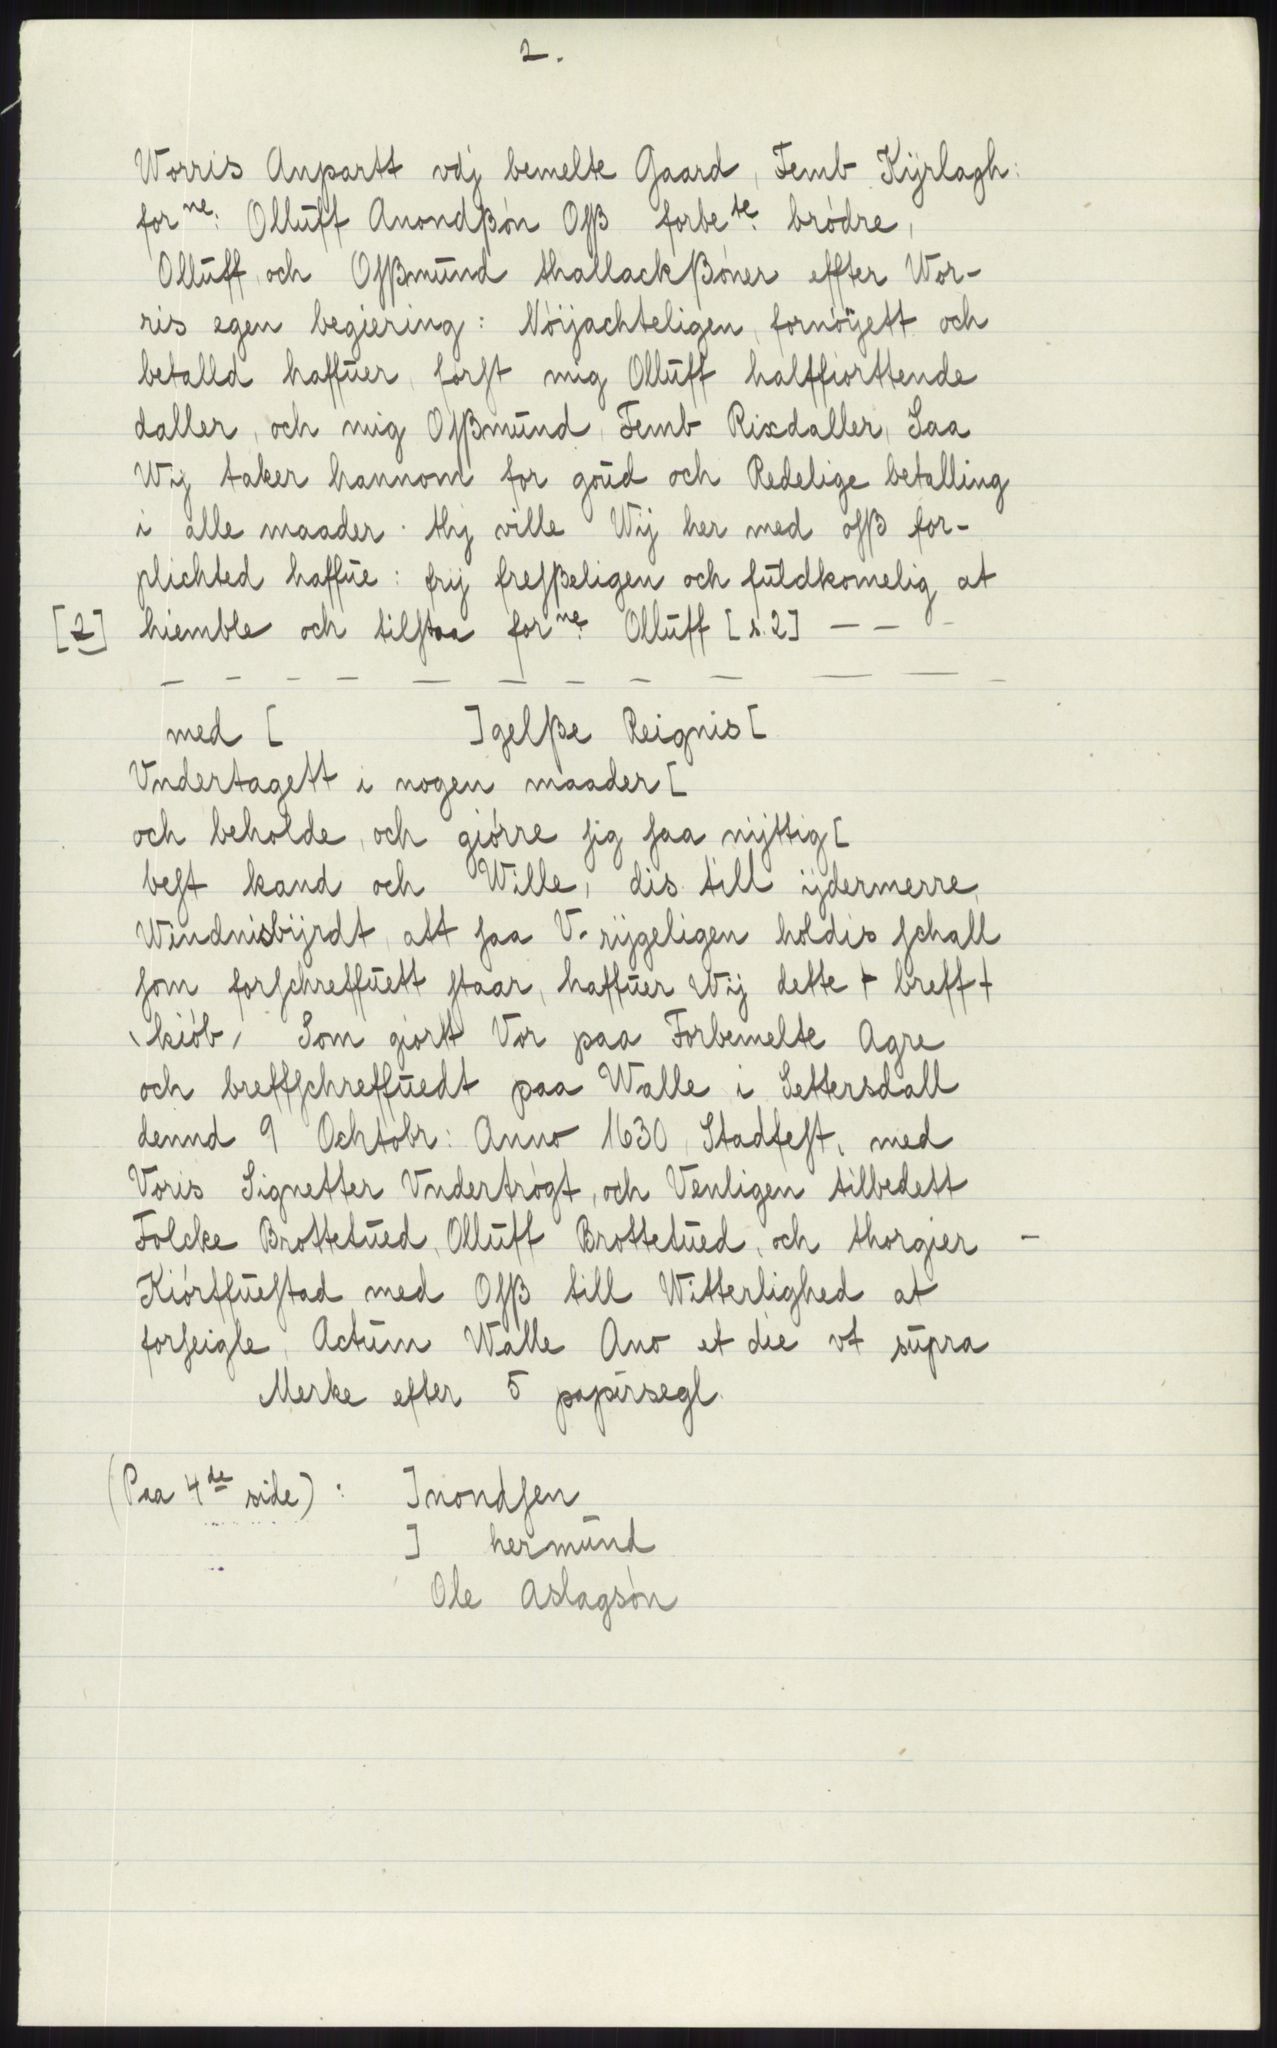 2.
Worris Anpartt vdj bemelte Gaard, Femb Kÿrlagh:
forne: Olluff Anondßøn Oſß forbete: brødre,
Olluff och Oſßmund thallackßøner effter Wor-
ris egen begiering: Nøijachteligen, fornøÿett och
betalld haffuer, først mig Olluff halffiorttende
daller, och mig Oſßmund, Femb Rixdaller, Saa
Wij taker hannom for goud och Redelige betalling
i alle maader. thj ville Wij her med oſß for-
plichted haffue: frij freſßeligen och fuldkomelig at
[2] hiemble och tilſtaa forne: Olluff [s. 2] — — —
— — — — — — — — — — — —
med [ ]gelße Reignis [
Vndertagett i nogen maader [
och beholde, och giørre ſig ſaa nÿttig [
beſt kand och Wille, dis till ÿdermerre,
Windnisbÿrdt, att ſaa V-rÿgeligen holdis ſchall
ſom forſchreffuett ſtaar, haffuer Wij dette + breff +
\ kiøb / Som giort Vor paa Forbemelte Agre
och breffſchreffuedt paa Walle i Settersdall
dennd 9 Ochtobr: Anno 1630, Stadfeſt, med
Voris Signetter Vndertrøgt, och Venligen tilbedett
Folcke Brottetued, Olluff Brottetued, och thorgier —
Kiørffueſtad med Oſß till Witterlighed at
forſeigle, Actum Walle Ano et die vt supra
Merke efter 5 papirsegl.
(Paa 4de side): ]nondſen
] hermund
Ole Aslagsøn